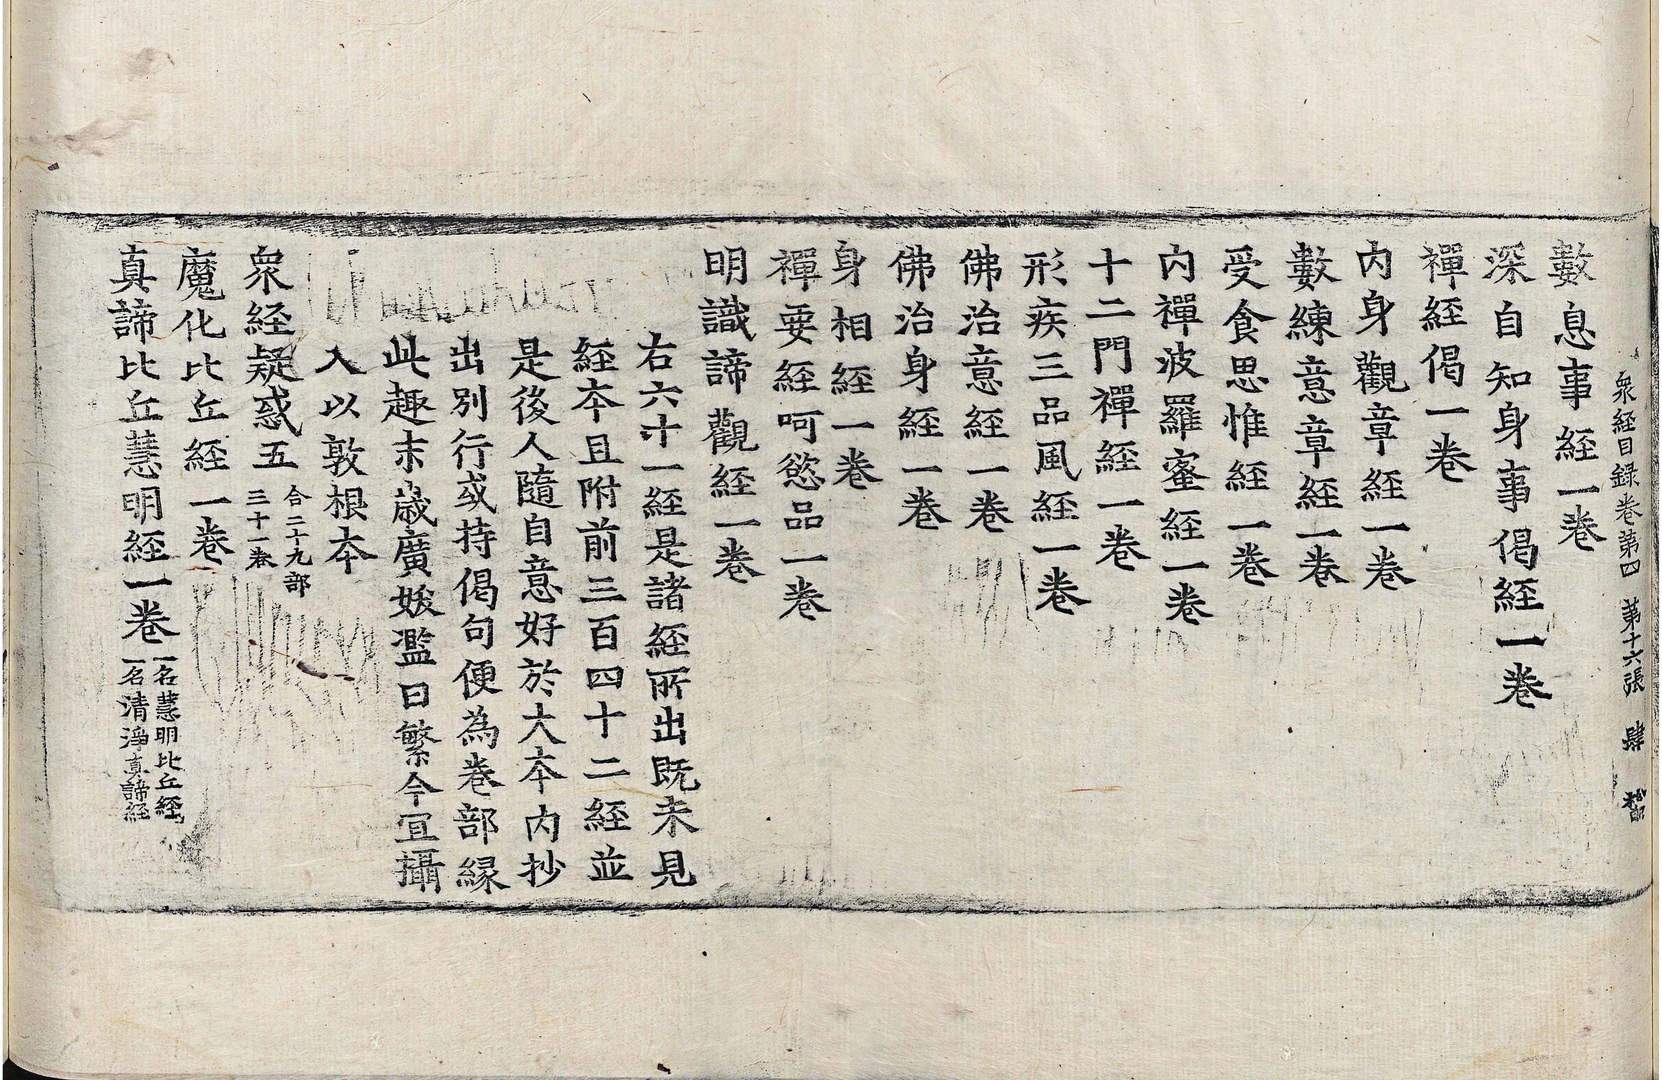 衆經目録卷第四 第十六張 肆
數息事經一卷
深自知身事偈經一卷
禪經偈一卷
内身觀章經一卷
數練意章經一卷
受食思惟經一卷
内禪波羅蜜經一卷
十二門禪經一卷
形疾三品風經一卷
佛治意經一卷
佛治身經一卷
身相經一卷
禪要經呵慾品一卷
明識諦觀經一卷
右六十一經是諸經所出既未見
經本且附前三百四十二經並
是後人隨自意好於大本内抄
出別行或持偈句便為卷部緣
此趣末歳廣妖濫日繁今宜攝
入以敦根本
衆經疑惑五 合二十九部
三十一卷
魔化比丘經一卷
真諦比丘慧明經一卷 一名慧明比丘經
一名清淨真諦經